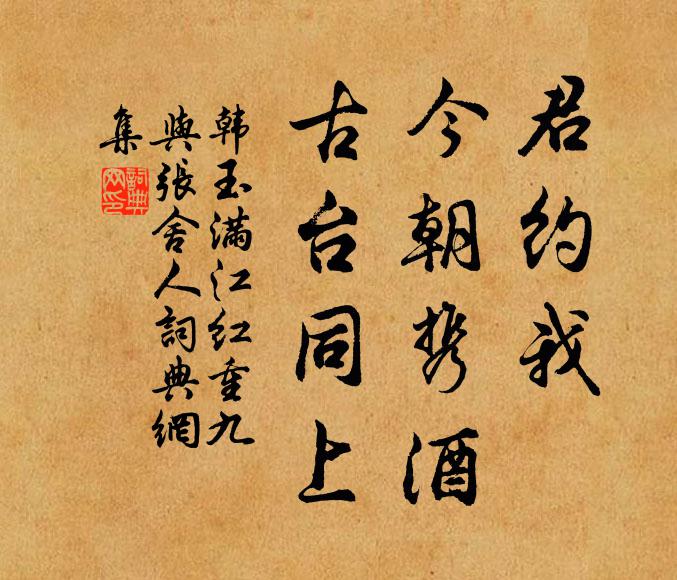 君约我
今朝携酒
古台同上
韩玉满江红重九
與張舍人詞典網
集
詞典網印